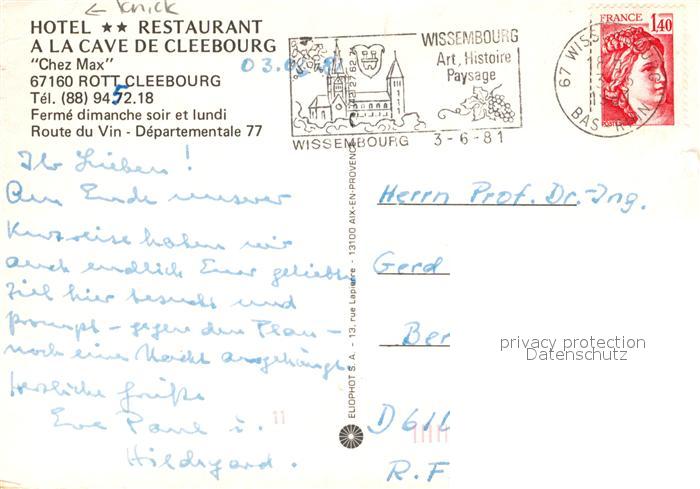 ← Knick
HOTEL ★★ RESTAURANT
A LA CAVE DE CLEEBOURG
"Chez Max"
67160 ROTT CLEEBOURG
Tél. (88) 94.52.18
Fermé dimanche soir et lundi
Route du Vin - Départementale 77
03.06.81
WISSEMBOURG
Art, Histoire
Paysage
WISSEMBOURG 3-6-81
67 WISS
BAS RHIN
FRANCE
1,40
POSTES
Ihr Lieben!
Am Ende unserer
Kurzreise haben wir
auch endlich Euer geliebtes
Ziel hier besucht und
prompt - gegen den Plan -
noch eine Nacht angehängt
Herzliche Grüße
Eve Paul u.
Hildegard.
ELIOPHOT S.A. - 13, rue Lapierre - 13100 AIX-EN-PROVENCE
Herrn Prof. Dr.-Ing.
Gerd
Ber
privacy protection
Datenschutz
D 611
R. F
11